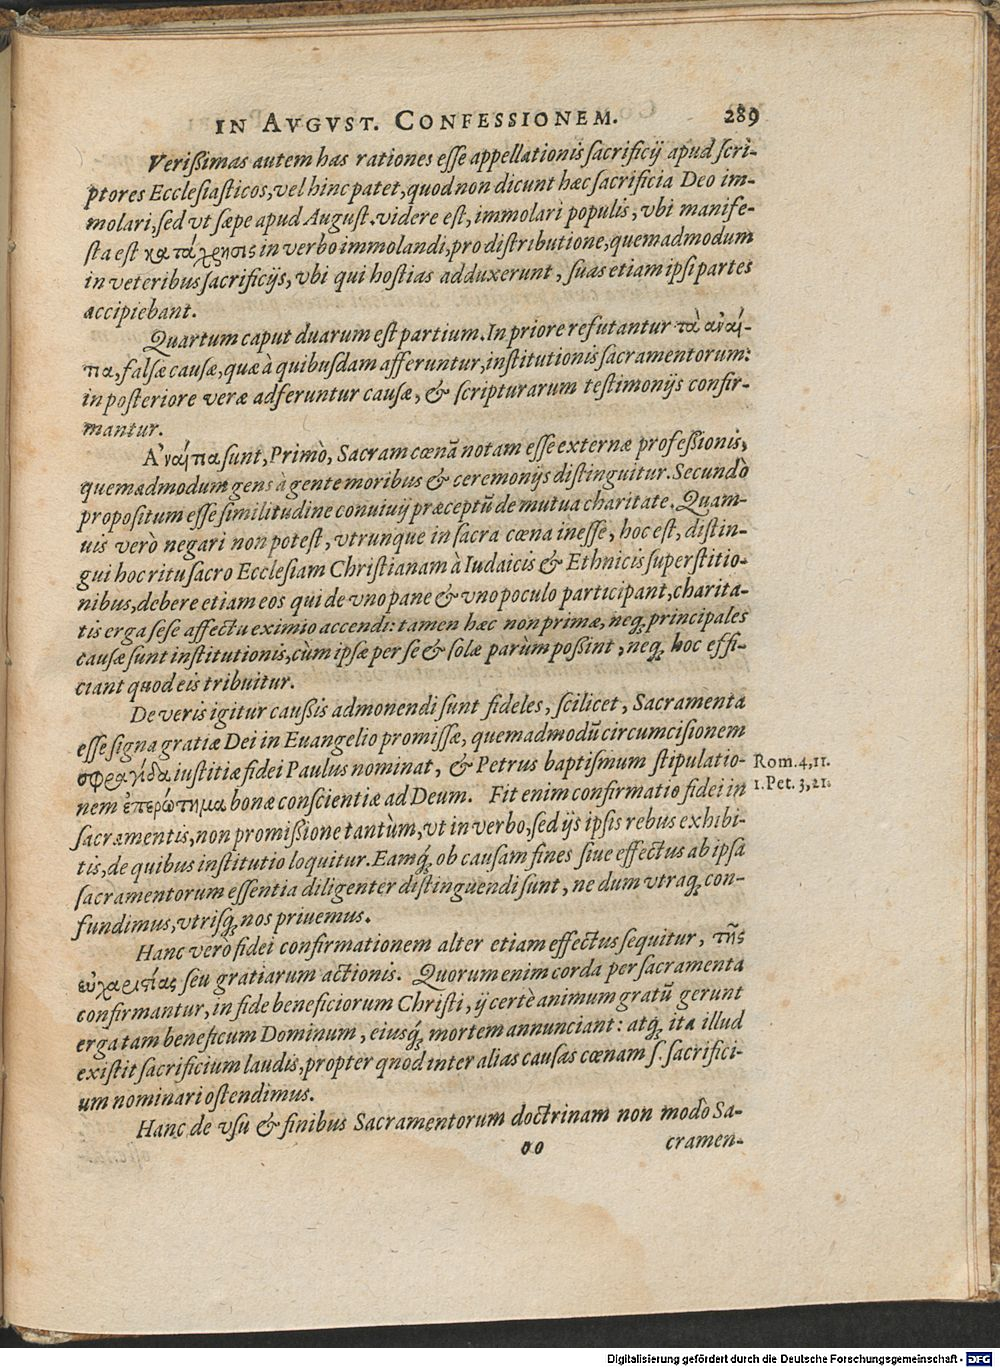 IN AVGVST. CONFESSIONEM. 289
Verißimas autem has rationes esse appellationis sacrificij apud scri-
ptores Ecclesiasticos, vel hinc patet, quod non dicunt hæc sacrificia Deo im-
molari, sed vt sæpe apud August. videre est, immolari populis, vbi manife-
sta est κατάχρησις in verbo immolandi, pro distributione, quemadmodum
in veteribus sacrificijs, vbi qui hostias adduxerunt, suas etiam ipsi partes
accipiebant.
Quartum caput duarum est partium. In priore refutantur τὰ ἀναί-
τια, falsæ causæ, quæ à quibusdam afferuntur, institutionis sacramentorum:
in posteriore veræ adferuntur causæ, & scripturarum testimonijs confir-
mantur.
Ἀναίτια sunt, Primò, Sacram cœnā notam esse externæ profeßionis,
quemadmodum gens à gente moribus & ceremonijs distinguitur. Secundò
propositum esse similitudine conuiuij præceptū de mutua charitate. Quam-
uis verò negari non potest, vtrunque in sacra cœna inesse, hoc est, distin-
gui hoc ritu sacro Ecclesiam Christianam à Iudaicis & Ethnicis superstitio-
nibus, debere etiam eos qui de vno pane & vno poculo participant, charita-
tis erga sese affectu eximio accendi: tamen hæc non primæ, neq; principales
causæ sunt institutionis, cùm ipsæ per se & solæ parùm poßint, neq; hoc effi-
ciant quod eis tribuitur.
De veris igitur caussis admonendi sunt fideles, scilicet, Sacramenta
esse signa gratiæ Dei in Euangelio promissæ, quemadmodū circumcisionem
σφραγίδα iustitiæ fidei Paulus nominat, & Petrus baptismum stipulatio-
Rom. 4, 11.
nem ἐπερώτημα bonæ conscientiæ ad Deum. Fit enim confirmatio fidei in
1. Pet. 3, 21.
sacramentis, non promißione tantùm, vt in verbo, sed ijs ipsis rebus exhibi-
tis, de quibus institutio loquitur. Eamq́; ob causam fines siue effectus ab ipsa
sacramentorum essentia diligenter distinguendi sunt, ne dum vtraq; con-
fundimus, vtrisq́; nos priuemus.
Hanc verò fidei confirmationem alter etiam effectus sequitur, τῆς
εὐχαριστίας seu gratiarum actionis. Quorum enim corda per sacramenta
confirmantur, in fide beneficiorum Christi, ij certè animum gratū gerunt
erga tam beneficum Dominum, eiusq́; mortem annunciant: atq́; ita illud
existit sacrificium laudis, propter qnod inter alias causas cœnam S. sacrifici-
um nominari ostendimus.
Hanc de vsu & finibus Sacramentorum doctrinam non modò Sa-
oo cramen-
Digitalisierung gefördert durch die Deutsche Forschungsgemeinschaft - DFG